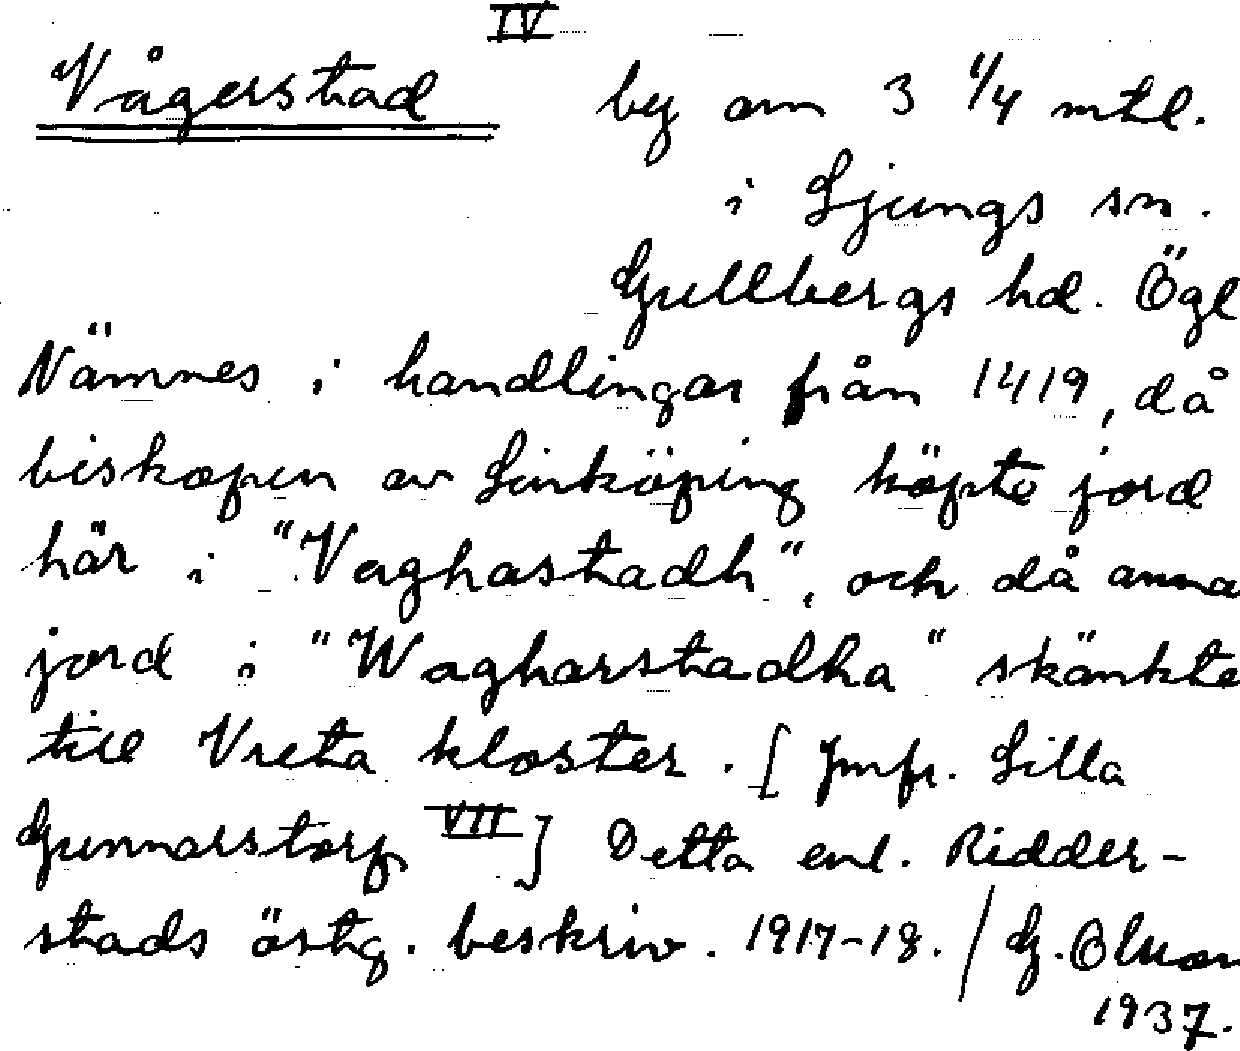 IV
Vågerstad by om 3 1/4 mtl.
i Ljungs sn.
Gullbergs hd. Ögl
Nämnes i handlingar från 1419, då
biskopen av Linköping köpte jord
här i "Vaghastadh", och då anna
jord i "Wagharstadha" skänkte
till Vreta kloster. [Jmfr. Lilla
Gunnarstorp VII] Detta enl. Ridder-
stads östg. beskriv. 1917-18. / G. Olsson
1937.